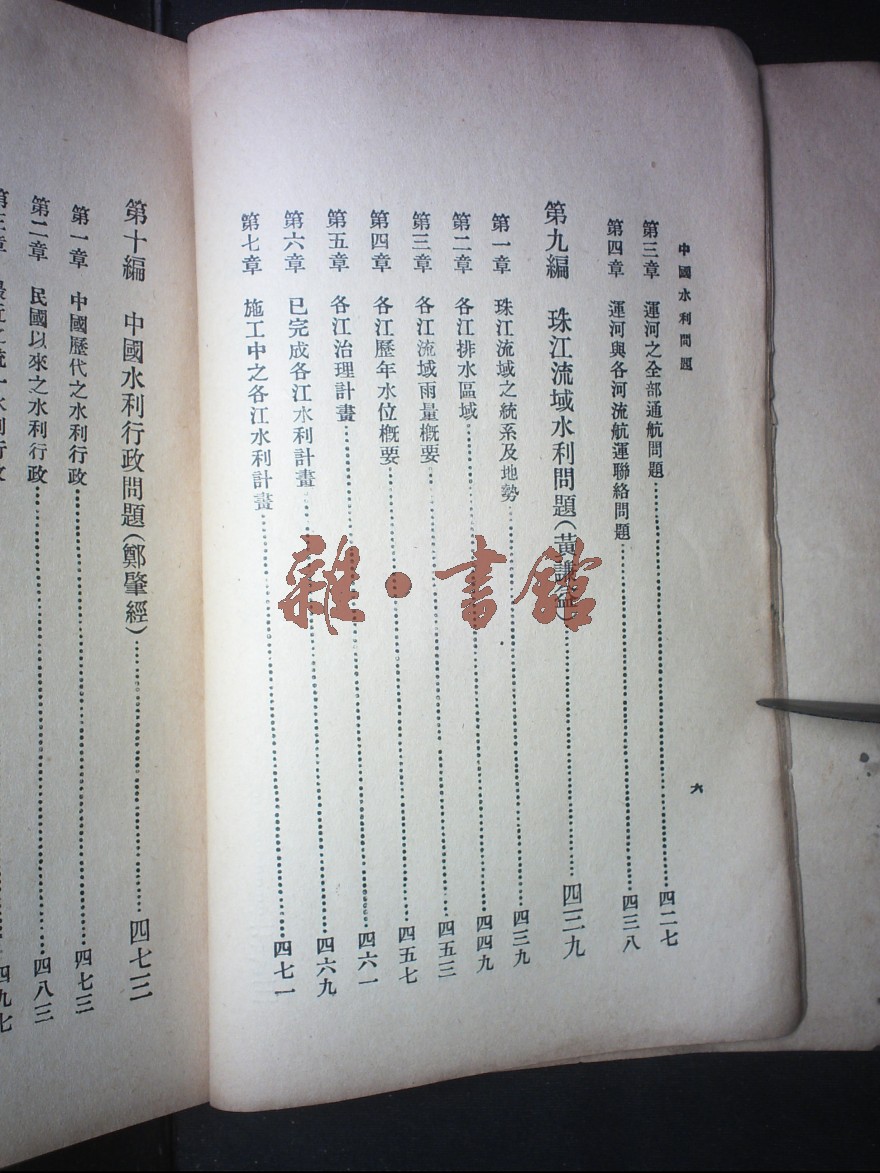 中國水利問題
第三章 運河之全部通航問題……四二七
第四章 運河與各河流航運聯絡問題……四三八
第九編 珠江流域水利問題（黃謙益）……四三九
第一章 珠江流域之統系及地勢……四三九
第二章 各江排水區域……四四九
第三章 各江流域雨量概要……四五三
第四章 各江歷年水位概要……四五七
第五章 各江治理計畫……四六一
第六章 已完成各江水利計畫……四六九
第七章 施工中之各江水利計畫……四七一
六
第十編 中國水利行政問題（鄭肇經）……四七三
第一章 中國歷代之水利行政……四七三
第二章 民國以來之水利行政……四八三
第三章 最近之統一水利行政……四九七
雜·書館